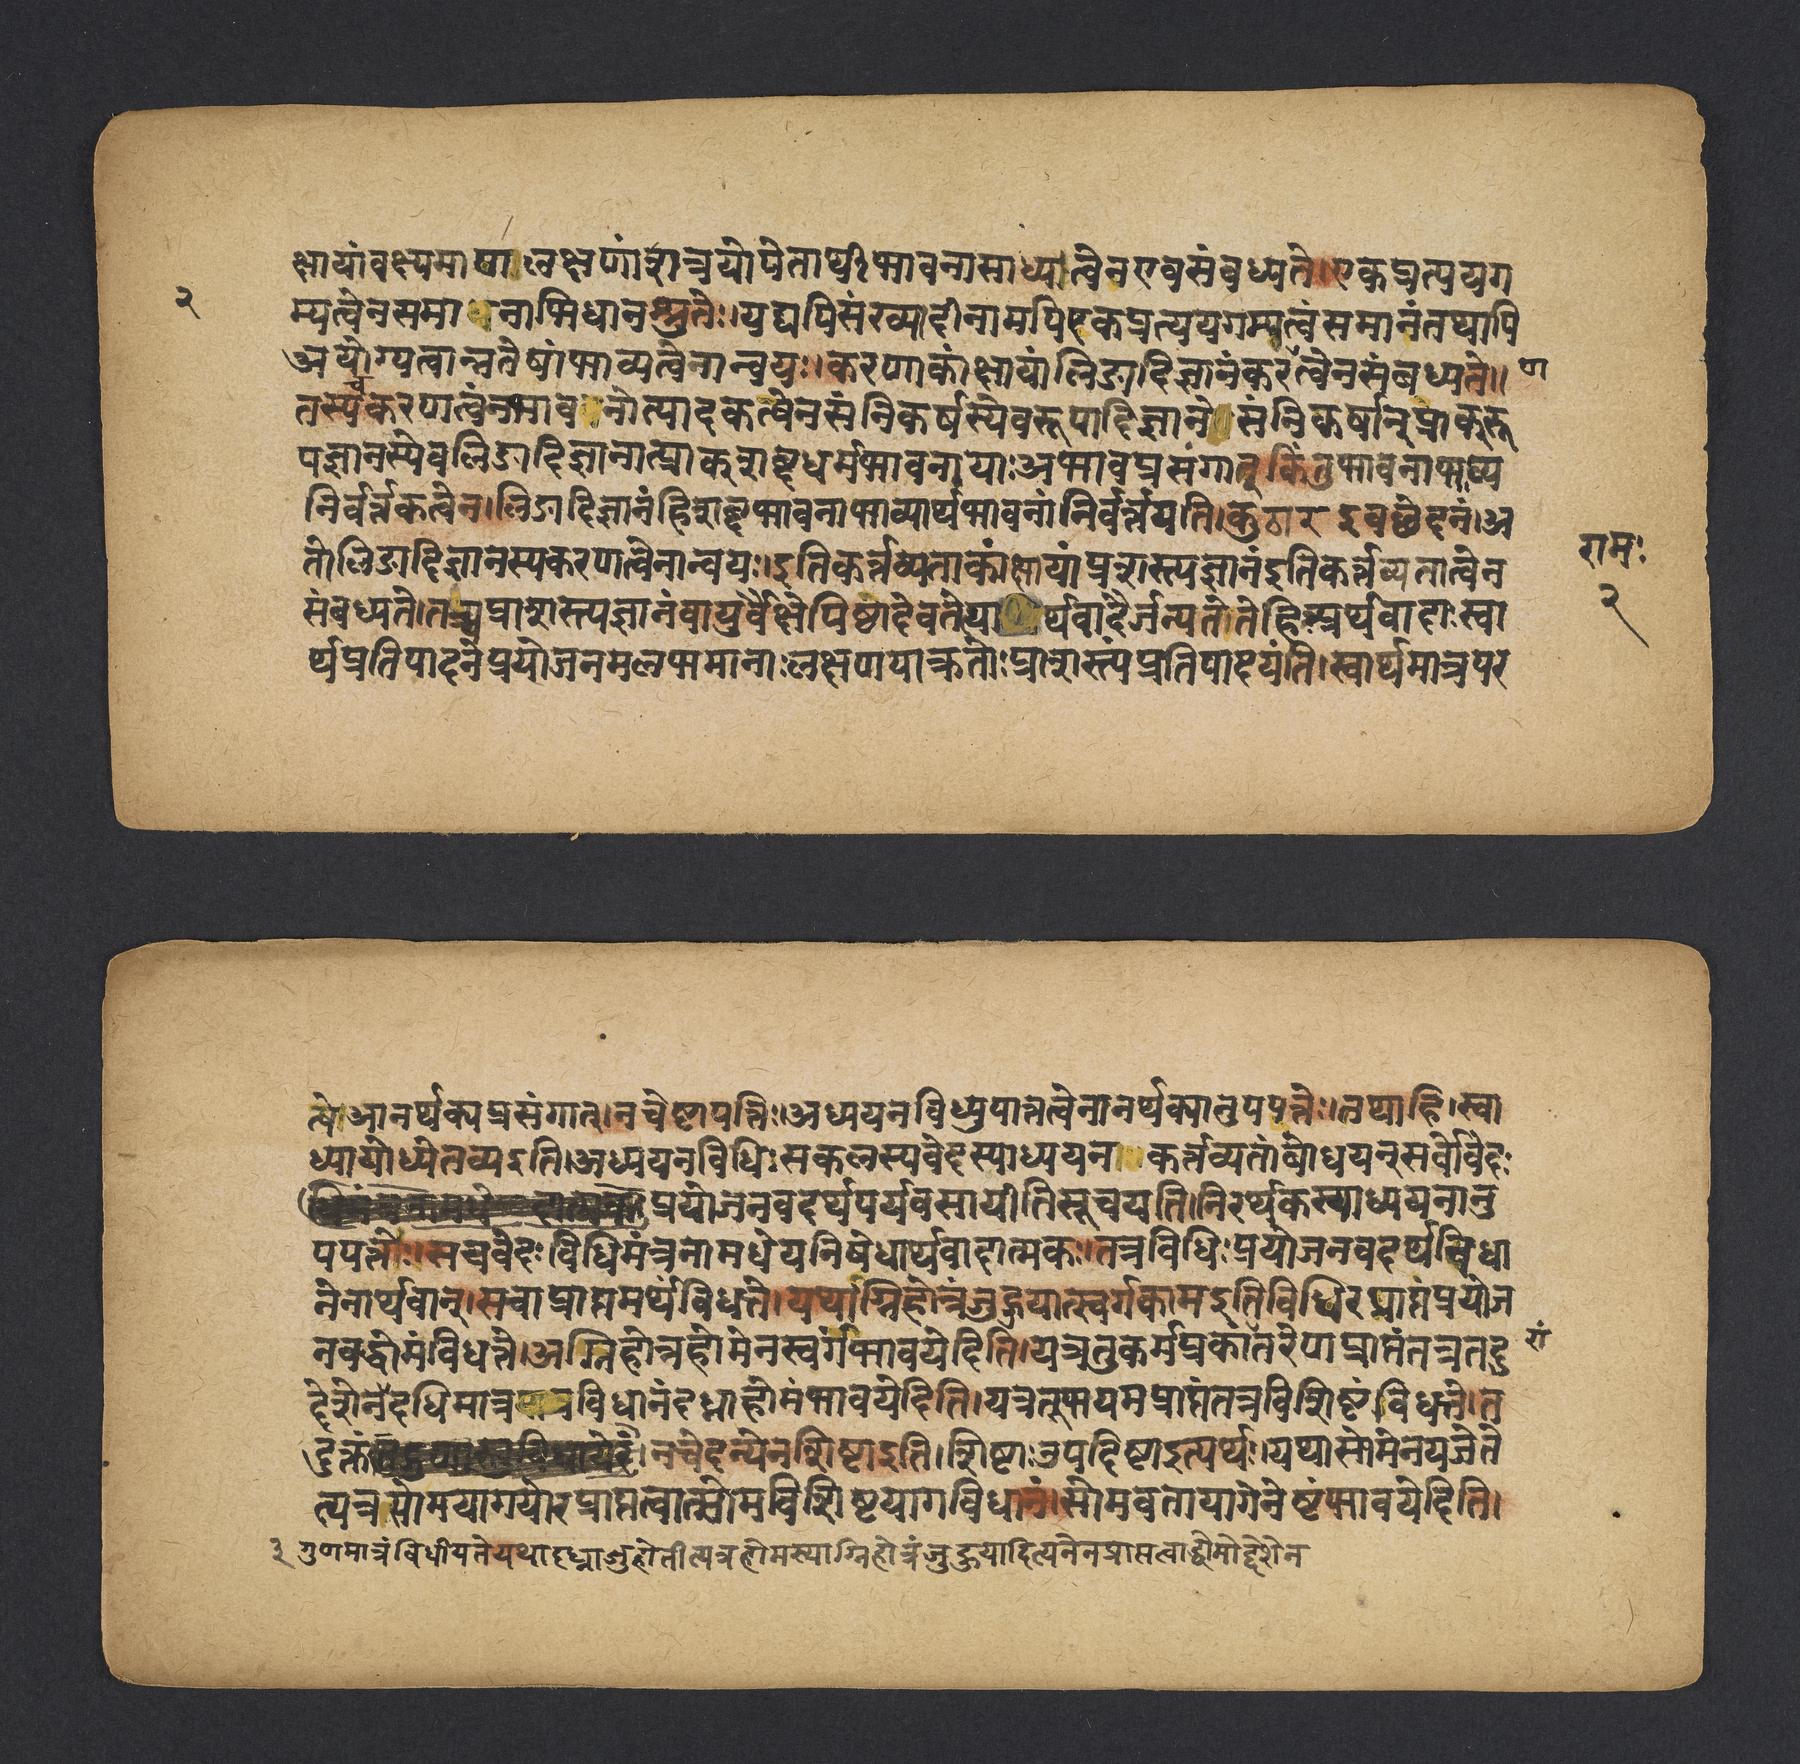 २
क्षायांवक्ष्यमाणालक्षणांशत्रयोपेतार्थीभावनासाध्यत्वेनएवसंबध्यते।एकप्रत्ययग
म्यत्वेनसमानाभिधानश्रुतेः।यद्यपिसंख्यादीनामपिएकप्रत्ययगम्यत्वंसमानंतथापि
अयोग्यत्वान्नतेषांभाव्यत्वेनान्वयः।करणाकांक्षायांलिङादिज्ञानंकरत्वेनसंबध्यते॥ ण
तस्यचकरणत्वंनभावनोत्पादकत्वेनसंनिकर्षस्येवरूपादिज्ञाने संनिकर्षात्प्राक्रू
पज्ञानस्येवलिङादिज्ञानात्प्राक्शब्दधर्मभावनायाःअभावप्रसंगात्किंतुभावनाभाव्य
निर्वर्त्तकत्वेन।लिङादिज्ञानंहिशब्दभावनाभाव्यार्थभावनांनिर्वर्त्तयति।कुठारइवछेदनं।अ
तोलिङादिज्ञानस्यकरणत्वेनान्वयः।इतिकर्त्तव्यताकांक्षायांप्राशस्त्यज्ञानंइतिकर्त्तव्यतात्वेन
संबध्यते।तच्चप्राशस्त्यज्ञानंवायुर्वैक्षेपिष्ठादेवतेत्या र्थवादैर्जन्यते।तेहिअर्थवादाःस्वा
र्थप्रतिपादनेप्रयोजनमलभमानाःलक्षणयाक्रतोःप्राशस्त्यंप्रतिपादयंति।स्वार्थमात्रपर
रामः
२
त्वेआनर्थक्यप्रसंगात्।नचेष्टापत्तिः।अध्ययनविध्युपात्तत्वेनानर्थक्यानुपपत्तेः।तथाहि।स्वा
ध्यायोध्येतव्यइति।अध्ययनविधिःसकलस्यवेदस्याध्ययन कर्त्तव्यतांबोधयन्सर्वोवेदः
प्रयोजनवदर्थपर्यवसायीतिसूचयति।निरर्थकस्याध्ययनानु
पपत्तेः।सचवेदःविधिमंत्रनामधेयनिषेधार्थवादात्मकः।तत्रविधिःप्रयोजनवदर्थविधा
नेनार्थवान्।सचाप्राप्तमर्थंविधत्ते।यथाग्निहोत्रंजुहुयात्स्वर्गकामइतिविधिरप्राप्तंप्रयोज
नवद्धोमंविधत्ते।अग्निहोत्रहोमेनस्वर्गंभावयेदिति।यत्रतुकर्मप्रकातरेणप्राप्तंतत्रतदु रां
द्देशेनदधिमात्र विधानंदध्नाहोमंभावयेदिति।यत्रतूभयमप्राप्तंतत्रविशिष्टंविधत्ते।त
दुक्तं नचेदन्येनशिष्टाइति।शिष्टाःउपदिष्टाइत्यर्थः।यथासोमेनयजेते
त्यत्रसोमयागयोरप्राप्तत्वात्सोमविशिष्टयागविधानं।सोमवतायागेनेष्टंभावयेदिति।
३ गुणमात्रंविधीयतेयथादध्नाजुहोतीत्यत्रहोमस्याग्निहोत्रंजुहुयादित्यनेनप्राप्तत्वाद्धोमोद्देशेन